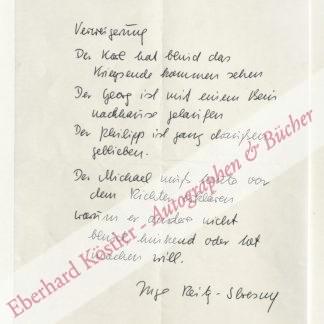 Verweigerung
Der Karl hat blind das
Kriegsende kommen sehen
Der Georg ist mit einem Bein
nachhause gelaufen
Der Philipp ist ganz draußen
geblieben.
Der Michael muß heute vor
dem Richter erklären
warum er darüber nicht
blind hinkend oder tot
lachen will.
Inge
Eberhard Köstler - Autographen & Bücher